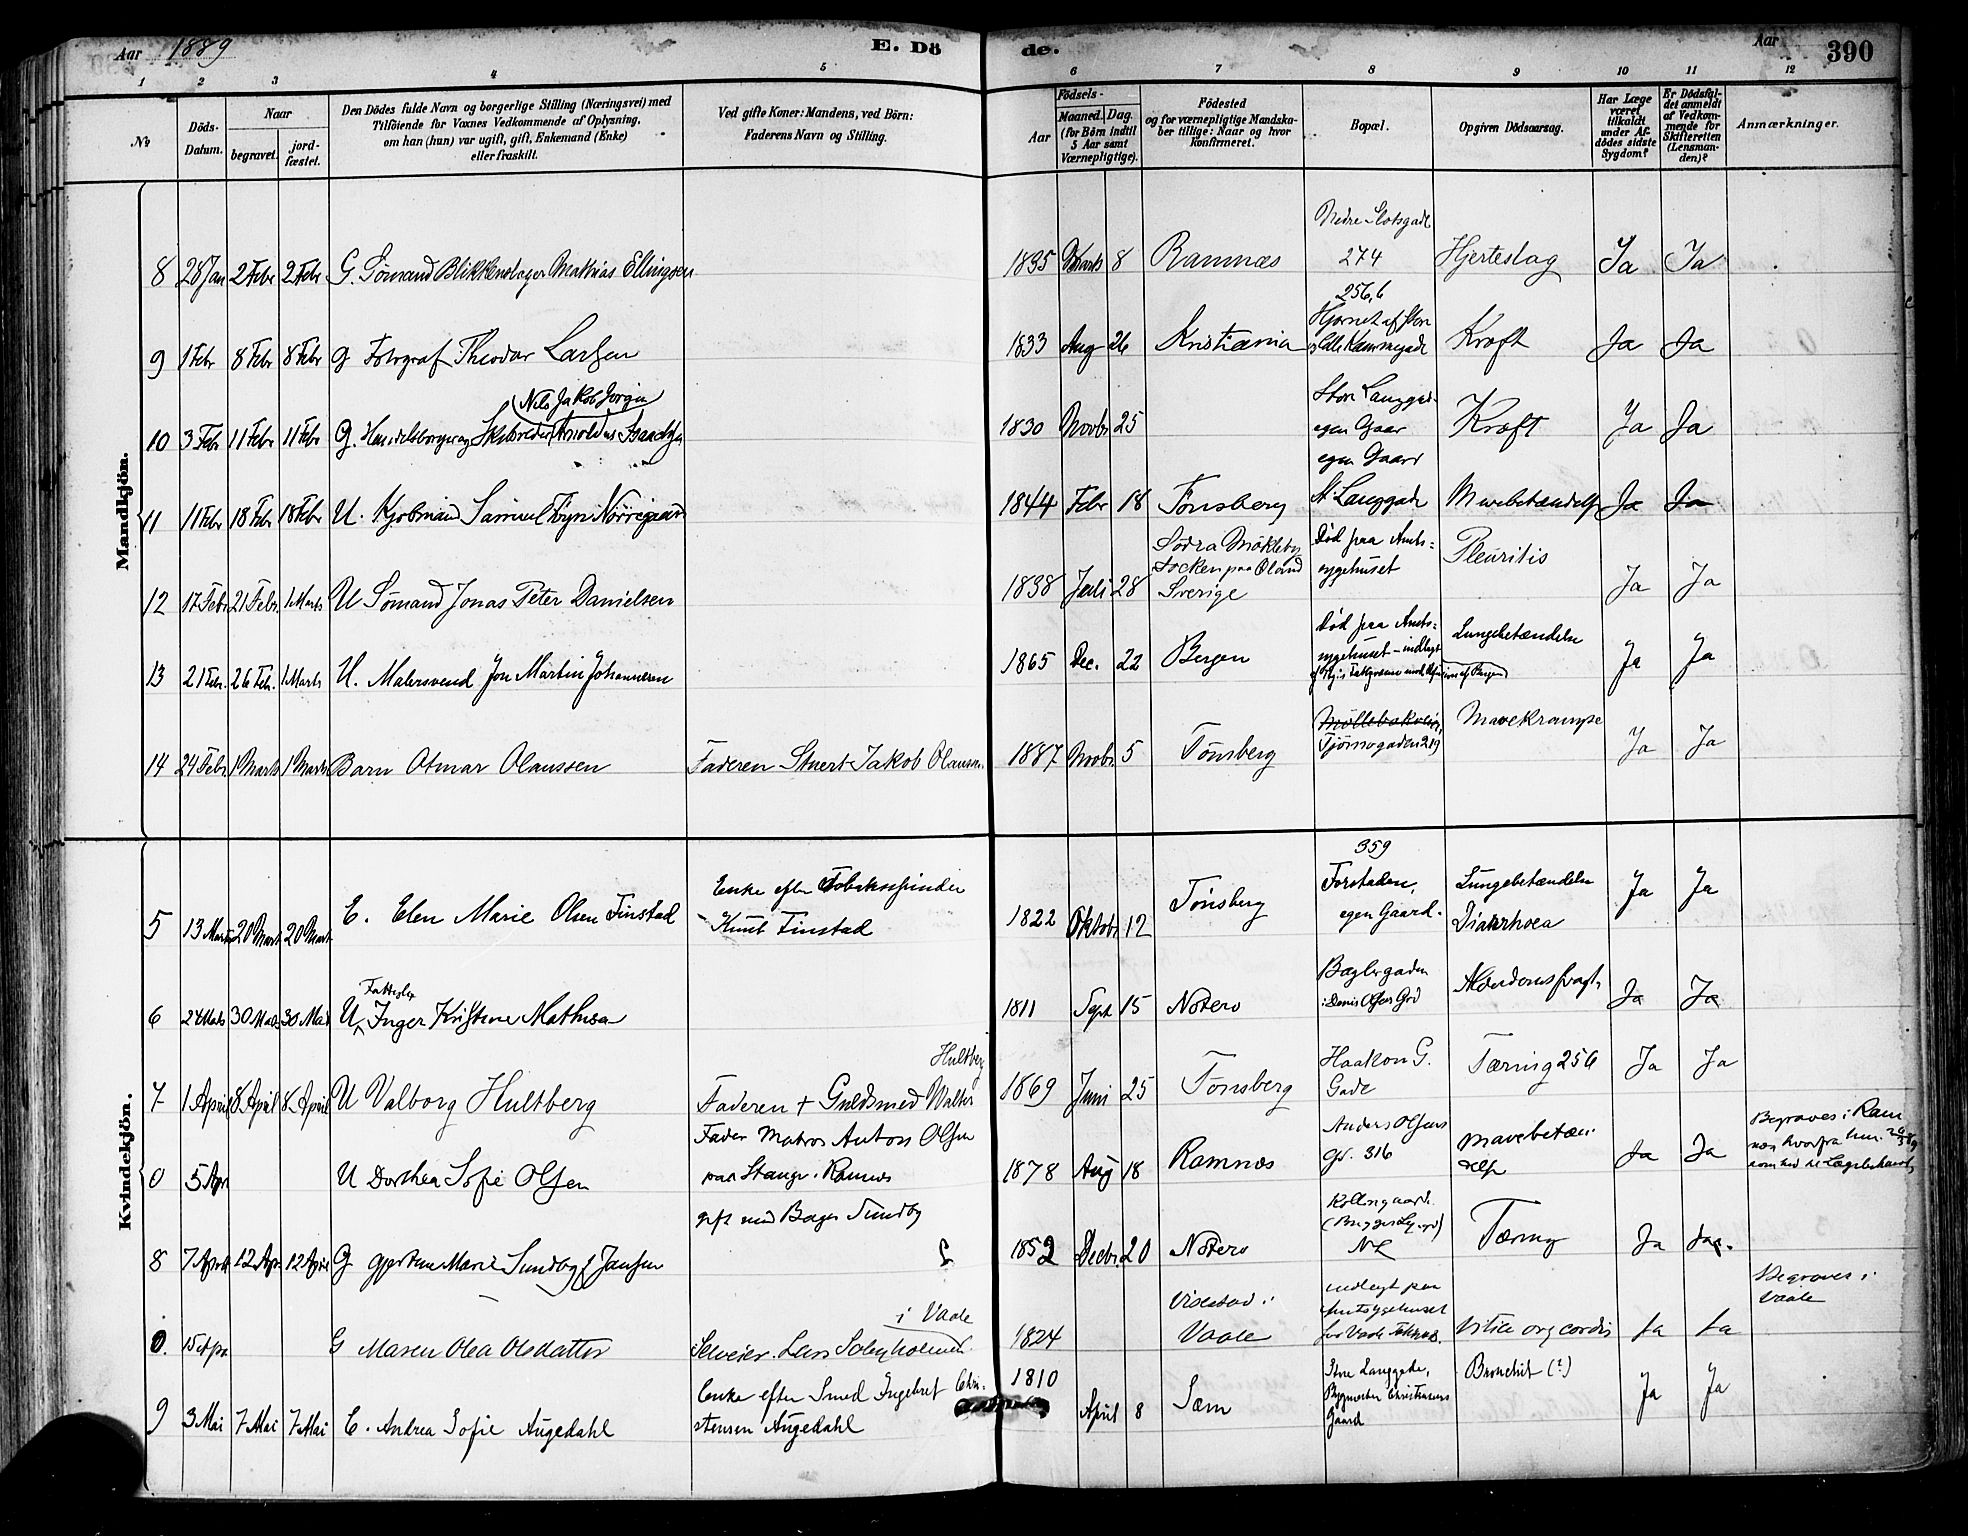 Aar 1889 E. Dö de. Aar 390
1 2 3 4 5 6 7 8 9 10 11 12
No
Döds-Datum.
Naar
begravet.
jord-fæstet.
Den Dödes fulde Navn og borgerlige Stilling (Næringsvei) med
Tilföiende for Voxnes Vedkommende af Oplysning,
om han (hun) var ugift, gift, Enkemand (Enke)
eller fraskilt.
Ved gifte Koner: Mandens, ved Börn:
Faderens Navn og Stilling.
Födsels-
Aar
Maaned. Dag.
(for Börn indtil
5 Aar samt
Værnepligtige).
Födested
og for værnepligtige Mandska-
ber tillige: Naar og hvor
konfirmeret.
Bopæl.
Opgiven Dödsaarsag.
Har Læge
været
tilkaldt
under Af-
dödes sidste
Sygdom?
Er Dödsfal-
det anmeldt
af Vedkom-
mende for
Skifteretten
(Lensman-
den)?
Anmærkninger.
Mandkjön.
Nedre Slotsgade
8 28 Jan 2 Febr 2 Febr G. Sömand Blikkenslager Mathias Ellingsen 1835 Marts 8 Ramnæs 274 Hjerteslag Ja Ja
256,6
Hjørnet af Stor
9 1 Febr 8 Febr 8 Febr G Fotograf Theodor Larsen 1833 Aug 26 Kristiania Kræft Ja Ja
Nils Jakob Jörgen
Store Langgad-
10 3 Febr 11 Febr 11 Febr G. Handelsborger og Skibsreder Arnoldus 1830 Novbr 25 egen Gaar Kræft Ja Ja
egen Gaard
11 11 Febr 18 Febr 18 Febr U. Kjøbmand Samuel Föyn Nörregaard 1844 Febr 18 Tönsberg St. Langgade Mavebetændelse Ja Ja
Södra Möckleby
Socken paa Öland
Död paa Amts=
sygehuset
Pleuritis
12 17 Febr 21 Febr 1 Marts U Sömand Jonas Peter Danielsen 1838 Juli 28 Sverige Ja Ja
Död paa Amts=
sygehuset - indlagt
13 21 Febr. 26 Febr. 1 Marts U. Malersvend Jon Martin Johannesen 1865 Dec. 22 Bergen Lungebetændelse Ja Ja
Möllebakveien
14 24 Febr 1 Marts 1 Marts Barn Otmar Olaussen Faderen Stuert Jakob Olaussen 1887 Novbr 5 Tönsberg Tjömogaden 219 Mavekrampe Ja Ja
Kvindekjön.
359
Enke efter Tobaksspinder
Forstaden,
Lungebetændelse
5 13 Marts 20 Marts 20 Marts E. Elen Marie Olsen Finstad Knut Finstad 1822 Oktobr 12 Tönsberg egen Gaard. Diarrhoea Ja Ja
Fattiglem
Baglergaden
6 24 Marts 30 Marts 30 Mar U Inger Kristine Mathisen 1811 Sept 15 Nøterø Alderdomssvagh. Ja Ja
Hultberg
Haakon G.
7 1 April 8 April 8 April U Valborg Hultberg Faderen + Guldsmed Walter 1869 Juni 25 Tönsberg Gade Tæring 256 Ja Ja
Fader Matros Anton Olsen
Anders Olsens
Mavebetæn-
Begraves i Ram
næs hvorfra hun
0 5 Apr U Dorthea Sofie Olsen paa Stange i Ramnes 1878 Aug 18 Ramnæs Gd. 316 delse Ja Ja
gift med Bager Sundby
8 7 April 12 Apr 12 April G Gjertine Marie Sundby f. Jansen 1852 Decbr. 20 Nøterø Tæring Ja Ja.
i Vaale
Begraves i
Vaale
Violstad i
indlagt paa
Amtsygehuset
0. 15 Apr G Maren Olea Olsdatter Selveier Lars 1824 Vaale Vitiu org cordis Ja Ja
Enke efter Smed Ingebret Chri-
Store Langgade,
Bygmester Christiansens
Gaard
9 3 Mai 7 Mai 7 Mai E. Andrea Sofie Augedahl stensen Augedahl 1810 April 8 Sæm Bronchit (?) Ja Ja